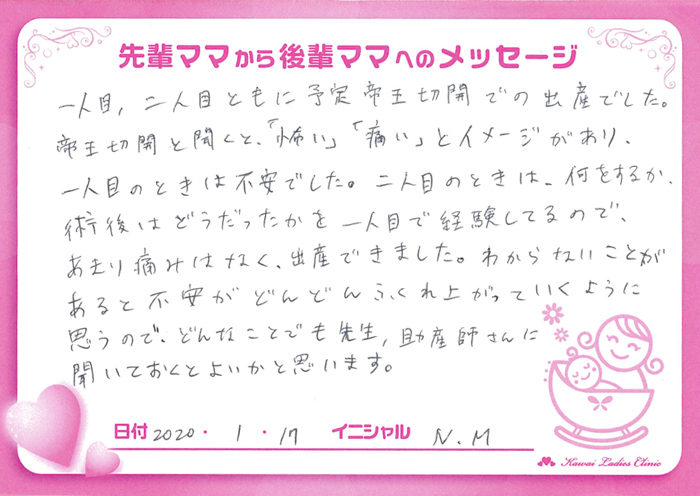 先輩ママから後輩ママへのメッセージ
一人目，二人目ともに予定帝王切開での出産でした。
帝王切開と聞くと、「怖い」「痛い」とイメージがあり、
一人目のときは不安でした。二人目のときは、何をするか、
術後はどうだったかを一人目で経験してるので、
あまり痛みはなく、出産できました。わからないことが
あると不安がどんどんふくれ上がっていくように
思うので、どんなことでも先生，助産師さんに
聞いておくとよいかと思います。
日付 2020・1・17 イニシャル N.M
Kawai Ladies Clinic